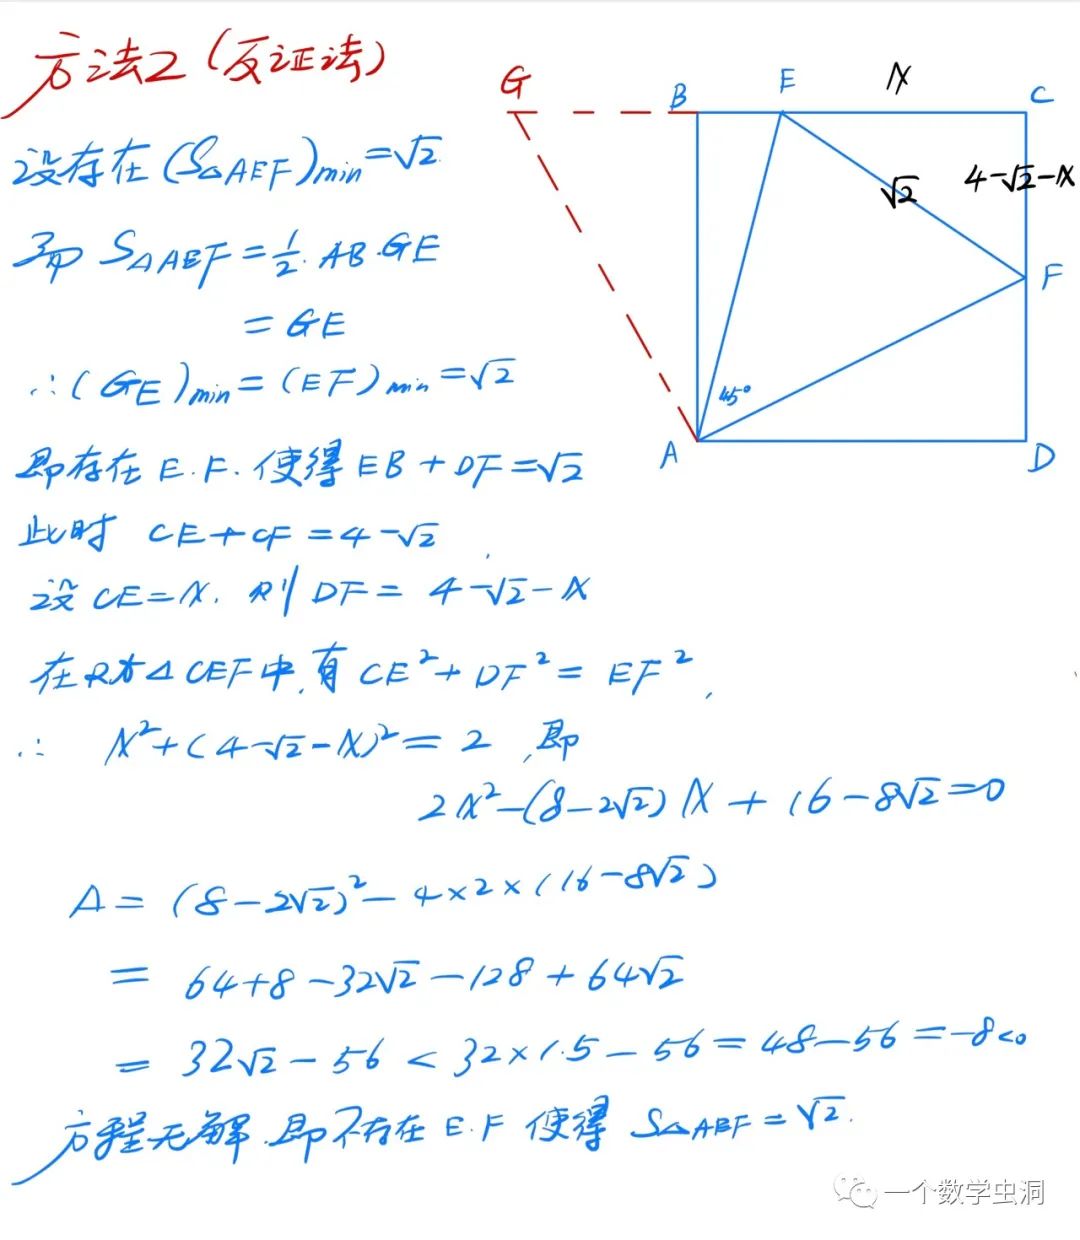 方法2(反证法)
G
B
E
x
C
设存在(S△AEF)min=√2
√2
4-√2-x
而 S△AEF=½·AB·GE
F
=GE
∴(GE)min=(EF)min=√2
45°
A
D
即存在E.F.使得EB+DF=√2
此时 CE+CF=4-√2
设CE=x.则DF=4-√2-x
在Rt△CEF中,有CE²+DF²=EF²,
∴ x²+(4-√2-x)²=2,即
2x²-(8-2√2)x+16-8√2=0
△=(8-2√2)²-4×2×(16-8√2)
=64+8-32√2-128+64√2
=32√2-56<32×1.5-56=48-56=-8<0
方程无解.即不存在E.F使得S△AEF=√2.
一个数学虫洞